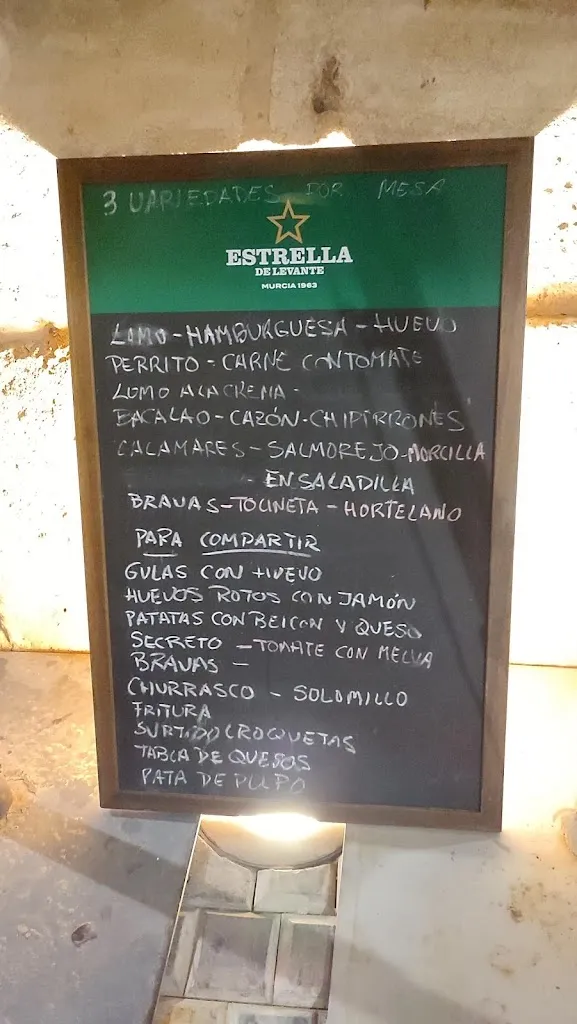 3 VARIEDADES POR MESA
ESTRELLA
DE LEVANTE
MURCIA 1963
LOMO - HAMBURGUESA - HUEVO
PERRITO - CARNE CON TOMATE
LOMO A LA CREMA -
BACALAO - CAZÓN - CHIPIRRONES
CALAMARES - SALMOREJO - MORCILLA
- ENSALADILLA
BRAVAS - TOCINETA - HORTELANO
PARA COMPARTIR
GULAS CON HUEVO
HUEVOS ROTOS CON JAMÓN
PATATAS CON BEICON Y QUESO
SECRETO - TOMATE CON MELVA
BRAVAS -
CHURRASCO - SOLOMILLO
FRITURA
SURTIDO CROQUETAS
TABLA DE QUESOS
PATA DE PULPO